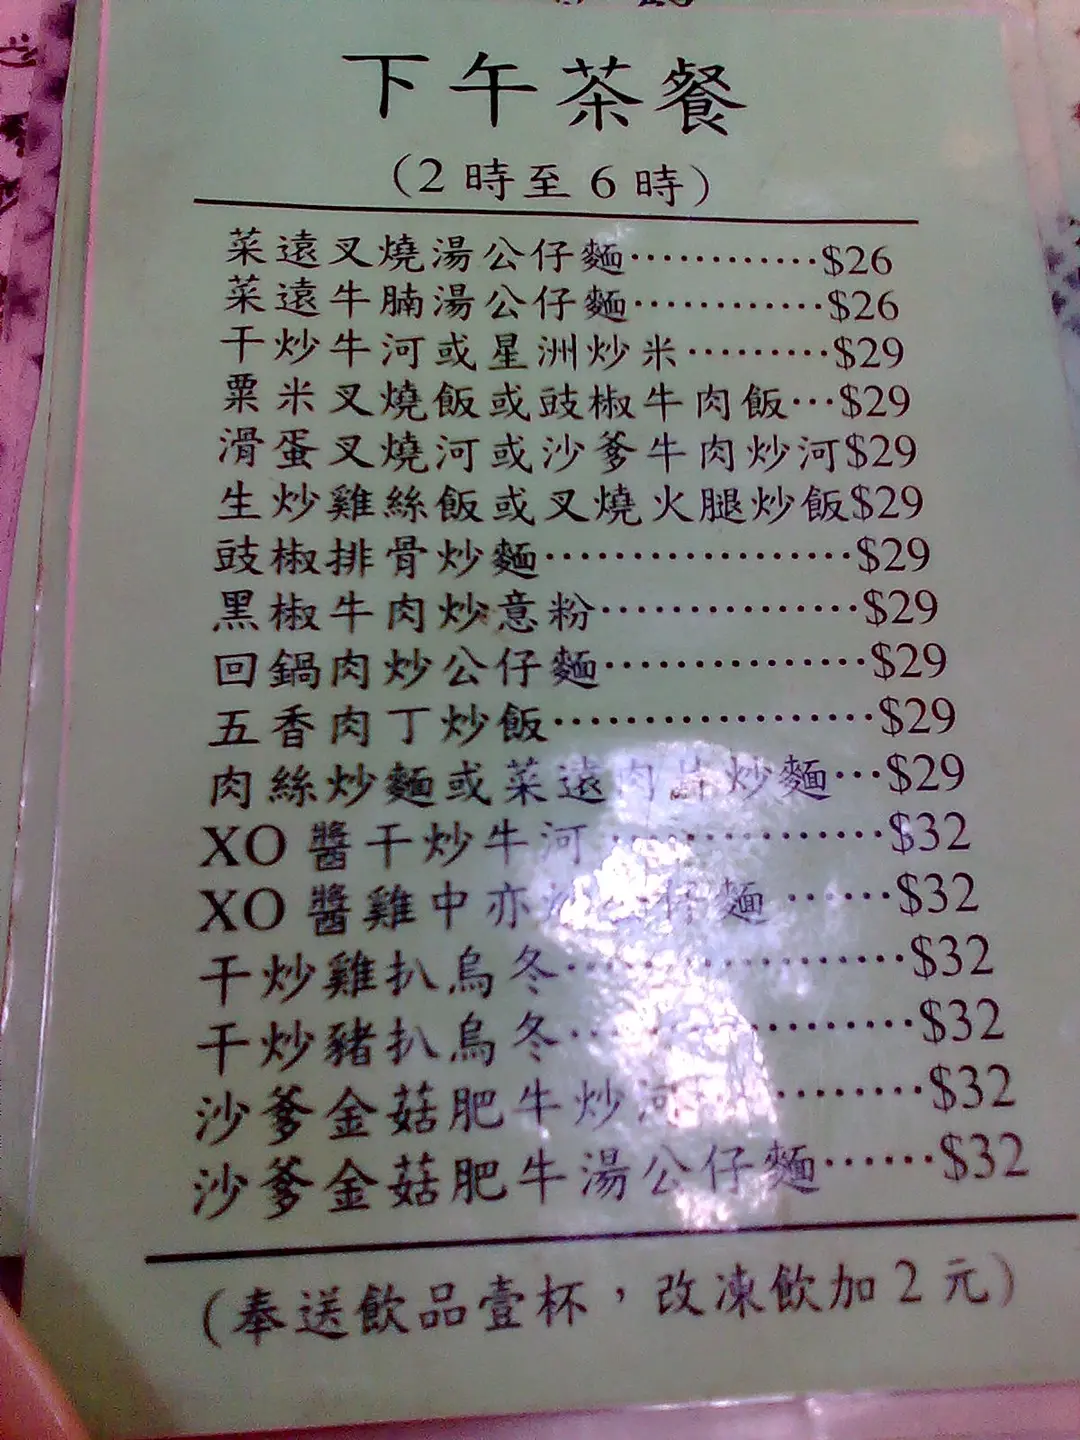 下午茶餐
(2時至6時)
菜遠叉燒湯公仔麵…………$26
菜遠牛腩湯公仔麵…………$26
干炒牛河或星洲炒米………$29
粟米叉燒飯或豉椒牛肉飯…$29
滑蛋叉燒河或沙爹牛肉炒河$29
生炒雞絲飯或叉燒火腿炒飯$29
豉椒排骨炒麵………………$29
黑椒牛肉炒意粉……………$29
回鍋肉炒公仔麵……………$29
五香肉丁炒飯………………$29
肉絲炒麵或菜遠肉片炒麵…$29
XO醬干炒牛河……………$32
XO醬雞中亦 仔麵……$32
干炒雞扒烏冬………………$32
干炒豬扒烏冬………………$32
沙爹金菇肥牛炒河…………$32
沙爹金菇肥牛湯公仔麵……$32
(奉送飲品壹杯，改凍飲加2元)